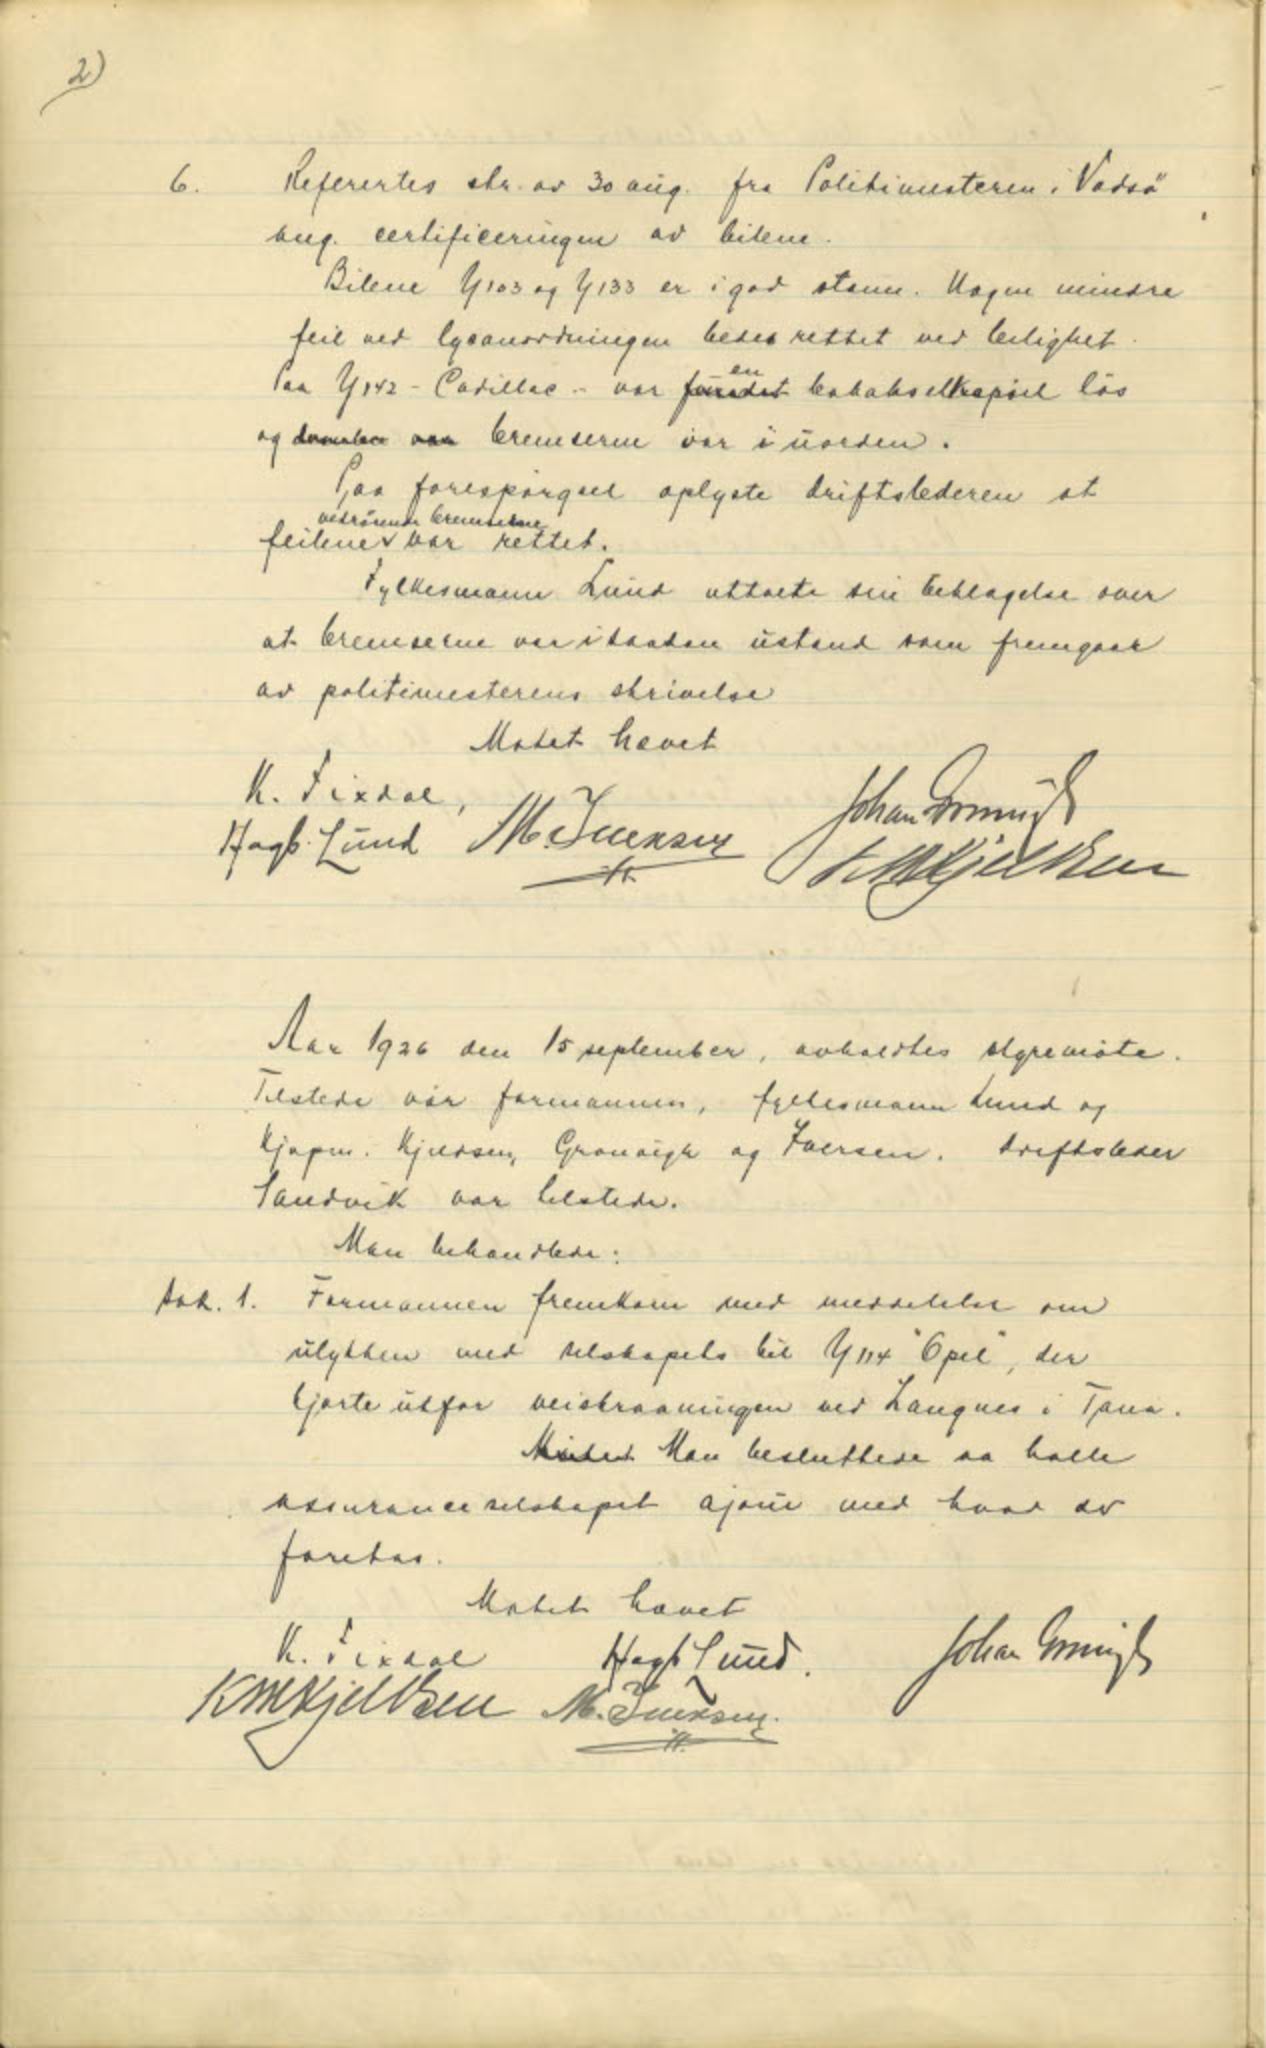 2)
6. Referertes skr. av 30 aug. fra Politimesteren i Vadsö
ang. certificeringen av bilene.
Bilene Y103 og Y133 er i god stann. Nogen mindre
feil ved lysanordningen bedes rettet ved leilighet.
Paa Y142 - Cadillac - var en bakakselkapsel lös
og bremserne var i uorden.
Paa forespörgsel oplyste driftslederen at
feilene vedrörende bremserne var rettet.
Fylkesmann Lund uttalte sin beklagelse over
at bremserne var i saadan ustand som fremgaar
av politimesterens skrivelse
Motet hævet
K. Fixdal, Johan Gronvigh
Hagb. Lund M. Iversen KMKjeldsen
Aar 1926 den 15 september, avholdtes styremöte.
Tilstede var formannen, fylkesmann Lund og
kjöpm. Kjeldsen, Gronvigh og Iversen. Driftsleder
Sandvik var tilstede.
Man behandlede:
Sak. 1. Formannen fremkom med meddelelse om
ulykken med selskapets bil Y114 "Opel", der
kjorte utfor veiskraaningen ved Langnes i Tana.
Man besluttede aa holde
assuranceselskapet ajour med hvad der
foretas.
Motet hævet
K. Fixdal Hagb Lund. Johan Gronvigh
KMKjeldsen M. Iversen.